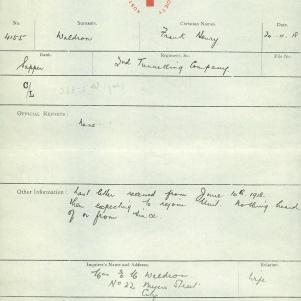 No.
Surname.
Christian Names.
Date.
4155
Waldron
Frank Henry
20-11-18
Rank.
Regiment, &c.
File No.
Sapper
2nd Tunnelling Company
C/L
OFFICIAL REPORTS:
None
Other Information: Last letter received from June 10th 1918.
then expecting to rejoin Unit. Nothing heard
of or from since.
Inquirer's Name and Address.
Relation.
Mrs E. G. Waldron
Wife
No 22 Myers Street
City